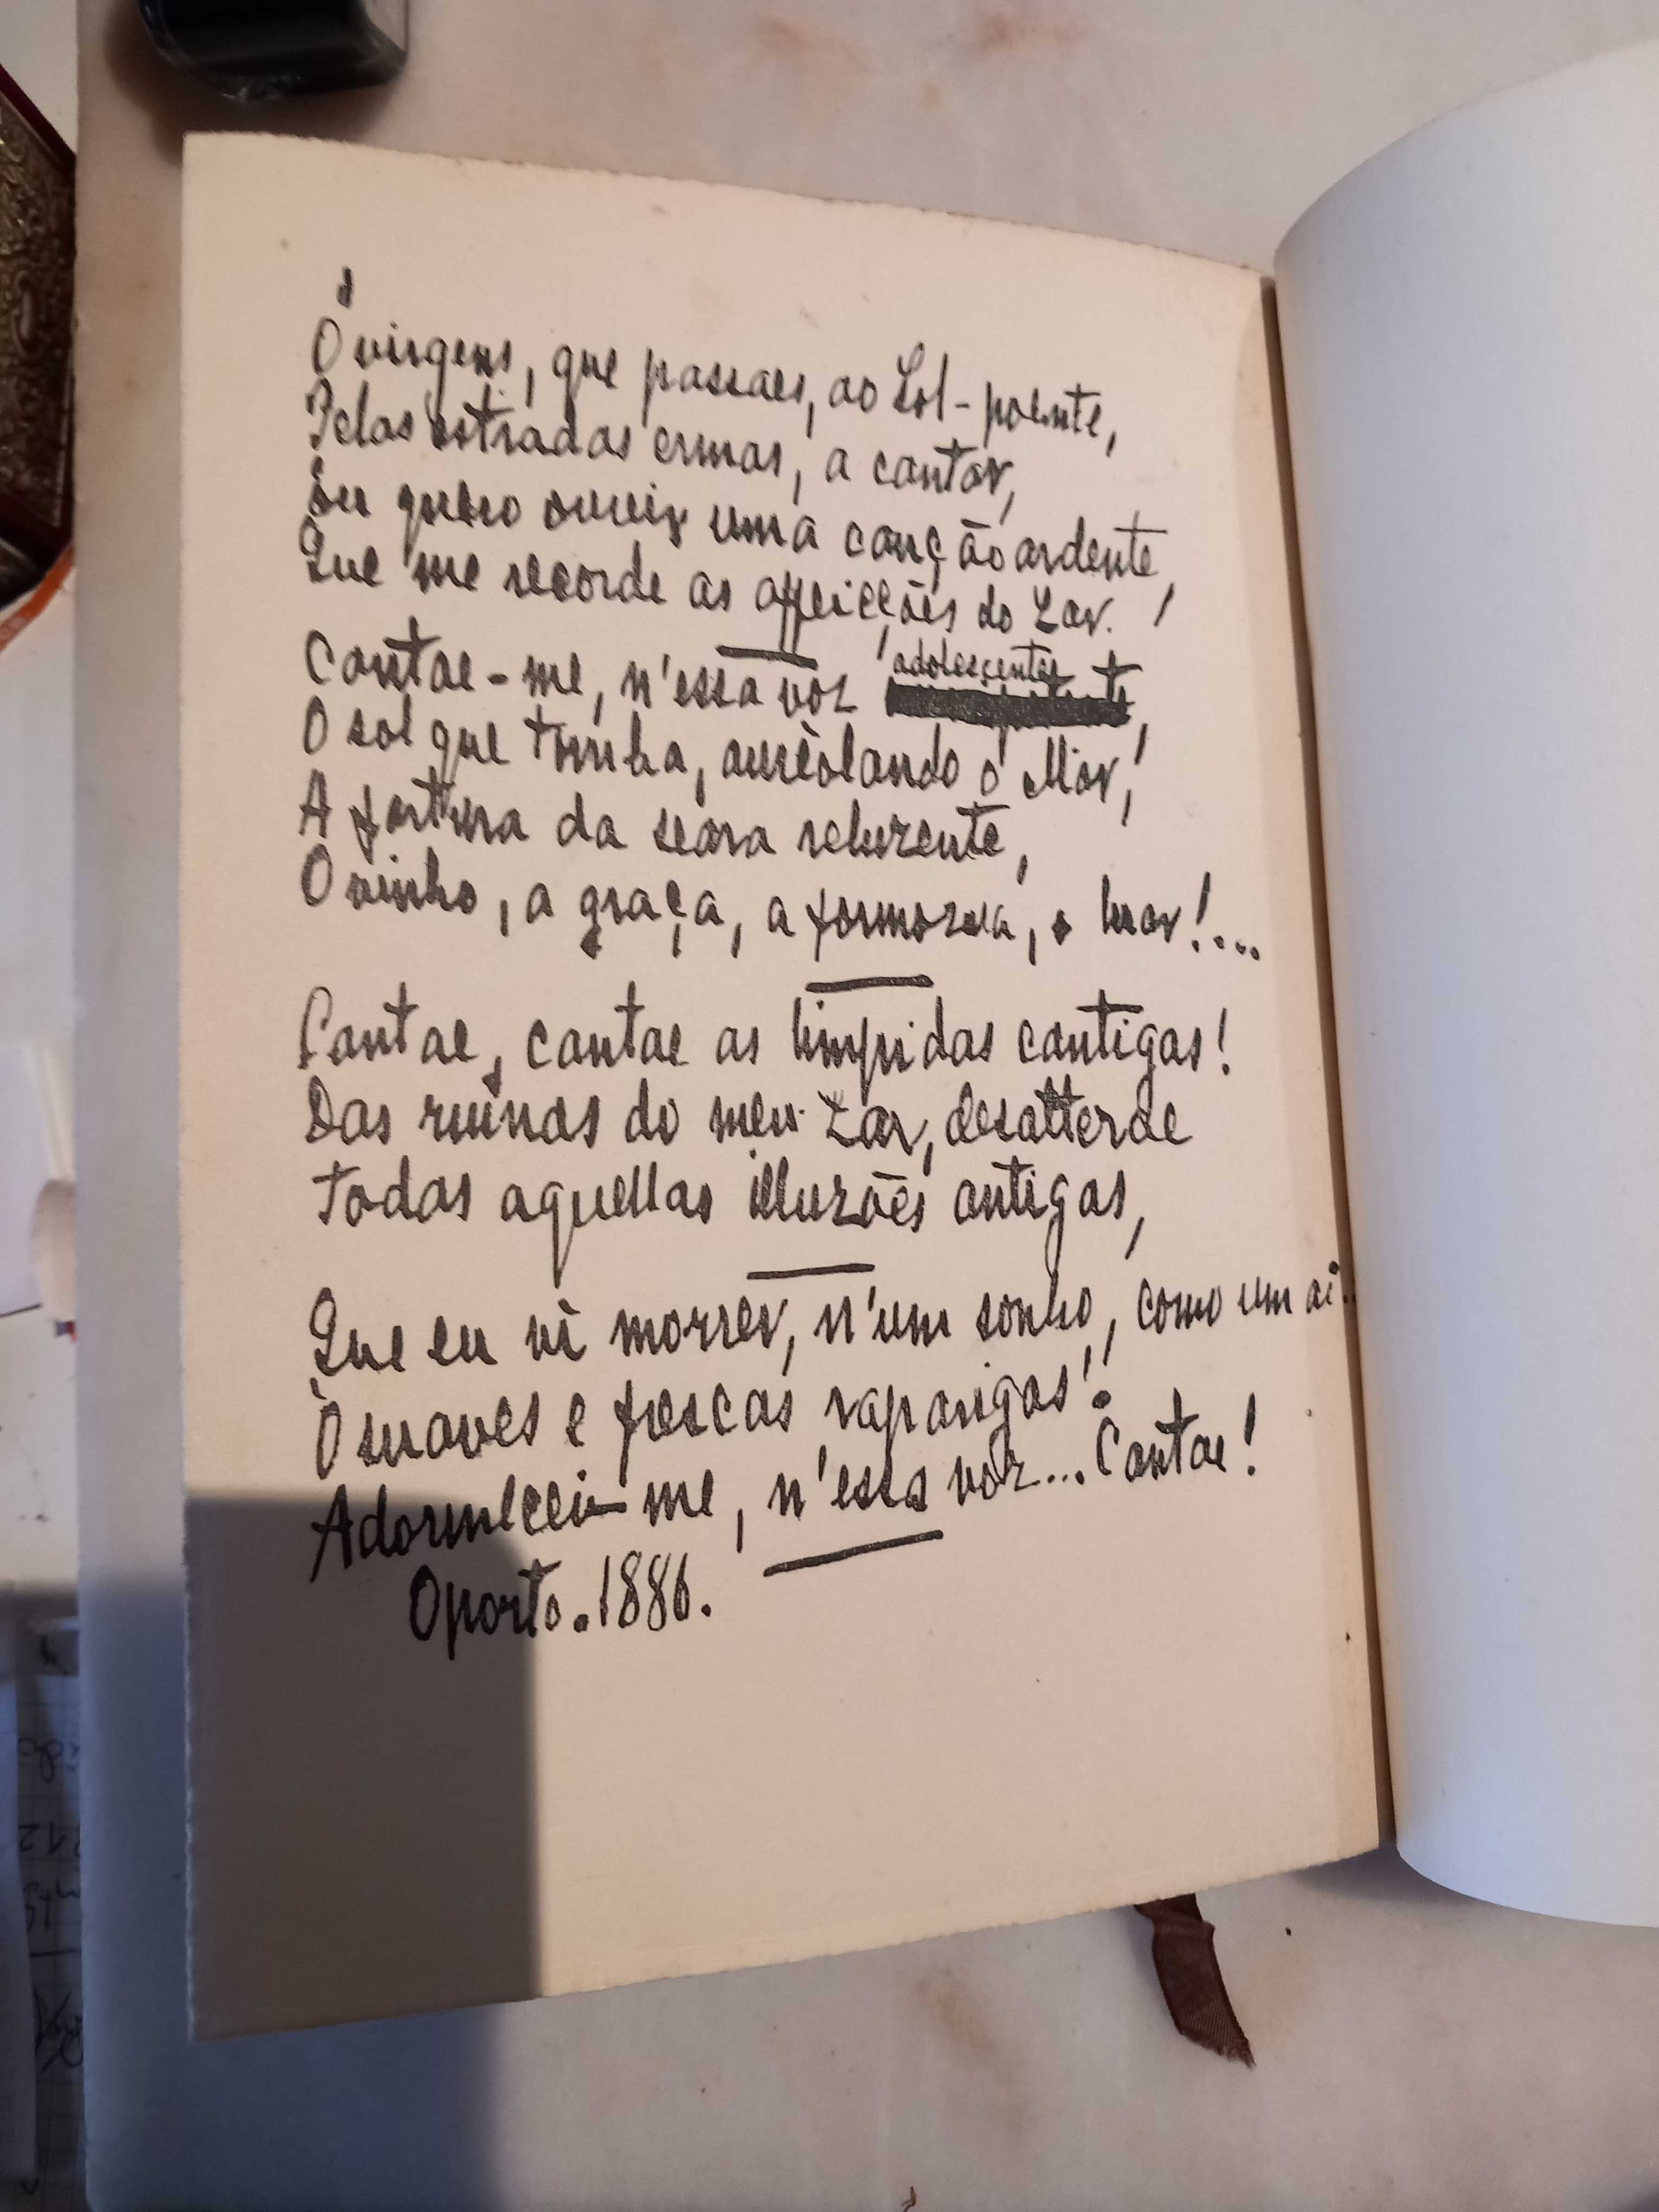 Ó virgens, que passaes, ao Sol-poente,
Pelas estradas ermas, a cantar,
Eu quero ouvir uma canção ardente,
Que me recorde as affeicções do Lar.
Cantae-me, n'essa voz adolescente,
O sol que tomba, aureolando o Mar,
A fartura da seara reluzente,
O vinho, a graça, a formozura, o luar!...
Cantae, cantae as limpidas cantigas!
Das ruinas do meu Lar, desatterae
Todas aquellas illuzões antigas,
Que eu vi morrer, n'um sonho, como um ai..
Ó suaves e frescas raparigas!
Adormecei-me, n'essa voz... Cantae!
Oporto. 1886.